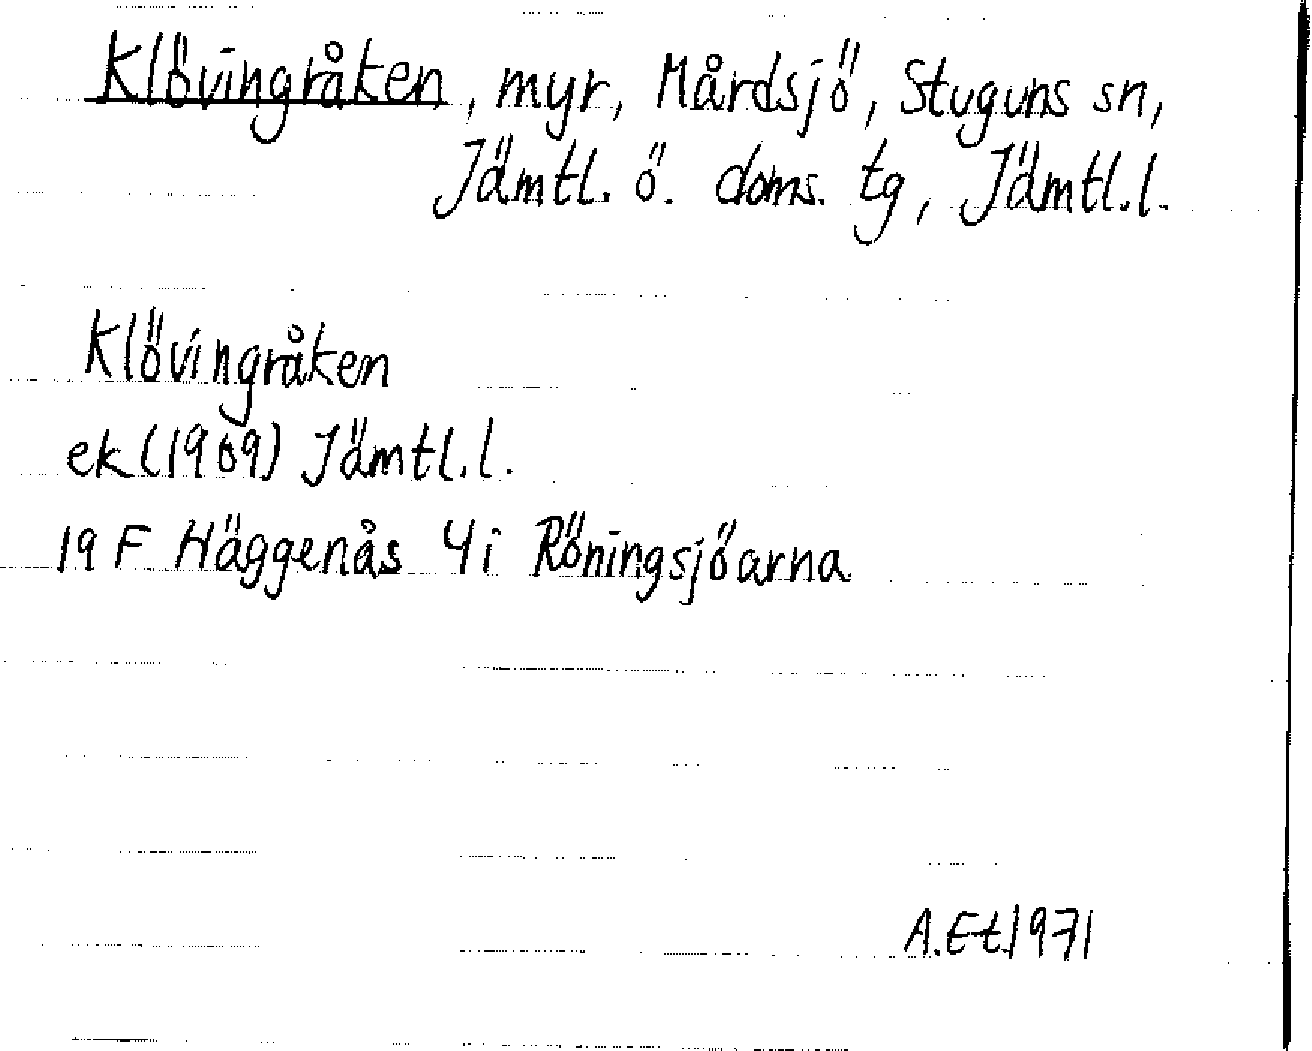 Klövingråken, myr, Mårdsjö, Stuguns sn,
Jämtl. ö. doms. tg, Jämtl.l.
Klövingråken
ek(1969) Jämtl.l.
19 F Häggenås 4i Röningsjöarna
A.Et.1971